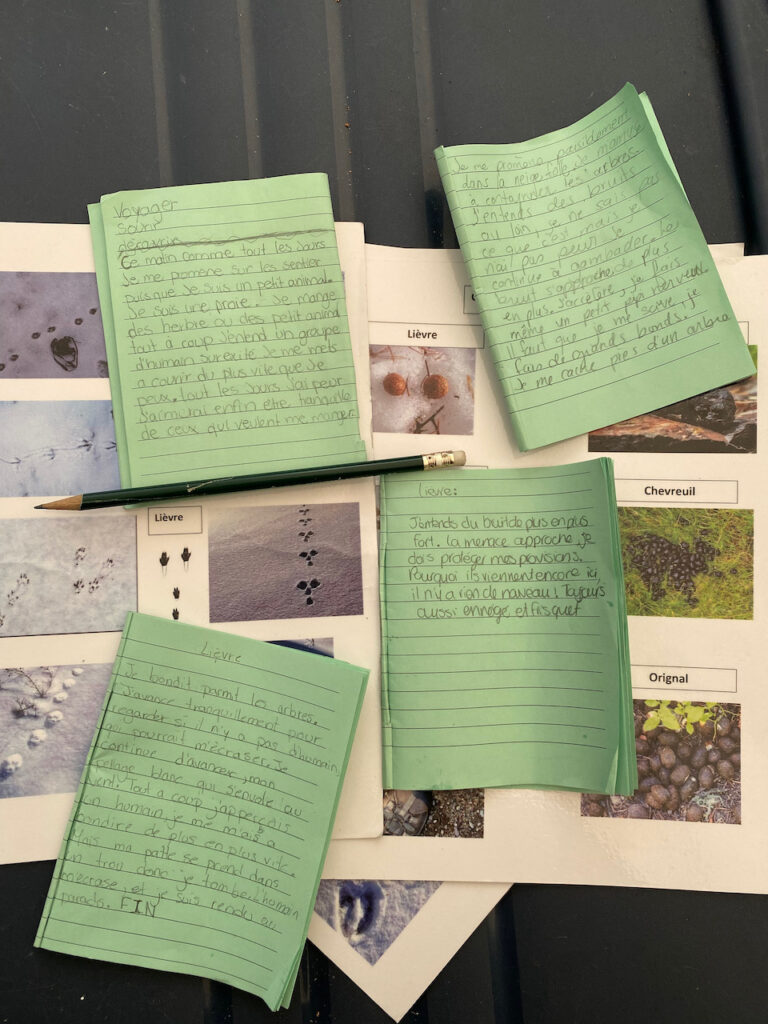 Voyager
Sourir
découvrir
Ce matin comme tout les jours
Je me promène sur les sentier
puisque je suis un petit animal.
Je suis une proie. Je mange
des herbe ou des petit animal
tout à coup j'entend un groupe
d'humain surexité. Je me mets
a courir du plus vite que je
peux. tout les jours j'ai peur
J'aimerai enfin être tranquille
de ceux qui veulent me manger.
Je me promène paisiblement
dans la neige
à contempler les arbres.
J'entends des bruits
au loin, je ne sait pas
ce que c'est mais je
n'ai pas peur je
continue à gambader. Le
bruit s'approche de plus
en plus. J'accélère, je fais
même un petit peux nerveux.
il faut que je me sauve, je
fais de grands bonds.
Je me cache près d'un arbre
Lièvre
Chevreuil
Lièvre
Orignal
Lièvre:
J'entends du bruit de plus en plus
fort. la menace approche, je
dois protéger mes provisions.
Pourquoi ils viennent encore ici,
il n'y a rien de nouveau! Toujours
aussi enneigé et frisquet
Lièvre
Je bondit parmit les arbres.
J'avance tranquillement pour
regarder si il n'y a pas d'humain
qui pourrait m'écraser. Je
continue d'avancer, mon
pellage blanc qui s'envole au
vent. Tout a coup j'apperçois
un humain, je me m'ais a
bondire de plus en plus vite.
Mais ma patte se prend dans
un trou donc je tombe. L'humain
m'écrase, et je suis rendu au
paradis. FIN